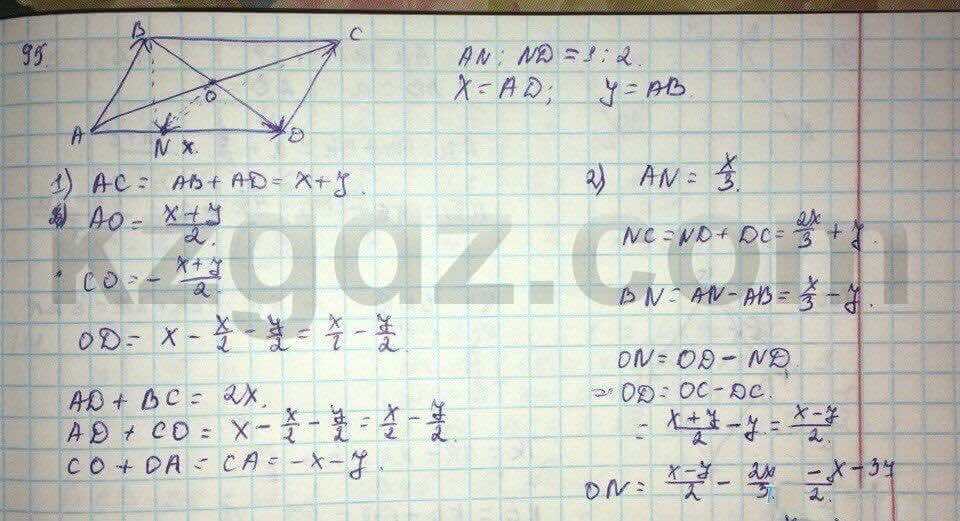 95.
B C
O
A N x. D
AN : ND = 1 : 2.
X = AD; y = AB.
1) AC = AB + AD = x + y.
AO = x + y / 2.
CO = - x + y / 2.
OD = x - x/2 - y/2 = x/2 - y/2.
AD + BC = 2x.
AD + CO = x - x/2 - y/2 = x/2 - y/2.
CO + OA = CA = -x - y.
2) AN = x/3.
NC = ND + DC = 2x/3 + y.
BN = AN - AB = x/3 - y.
ON = OD - ND
OD = OC - DC.
= x + y / 2 - y = x - y / 2.
ON = x - y / 2 - 2x/3 -x - 3y / 2.
kzgdz.com